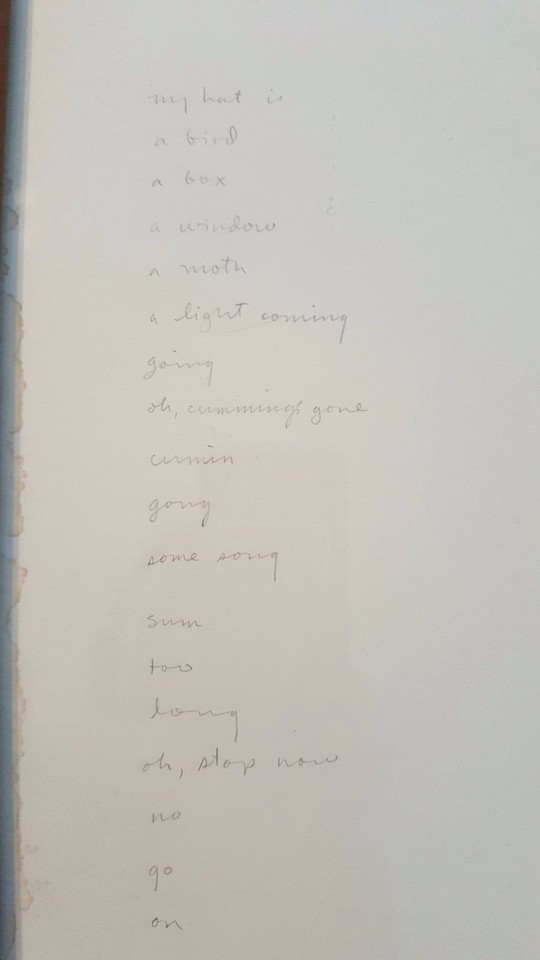 my hat is
a bird
a box
a window
a moth
a light coming
going
oh, cummings gone
cumin
gong
some song
sum
too
long
oh, stop now
no
go
on